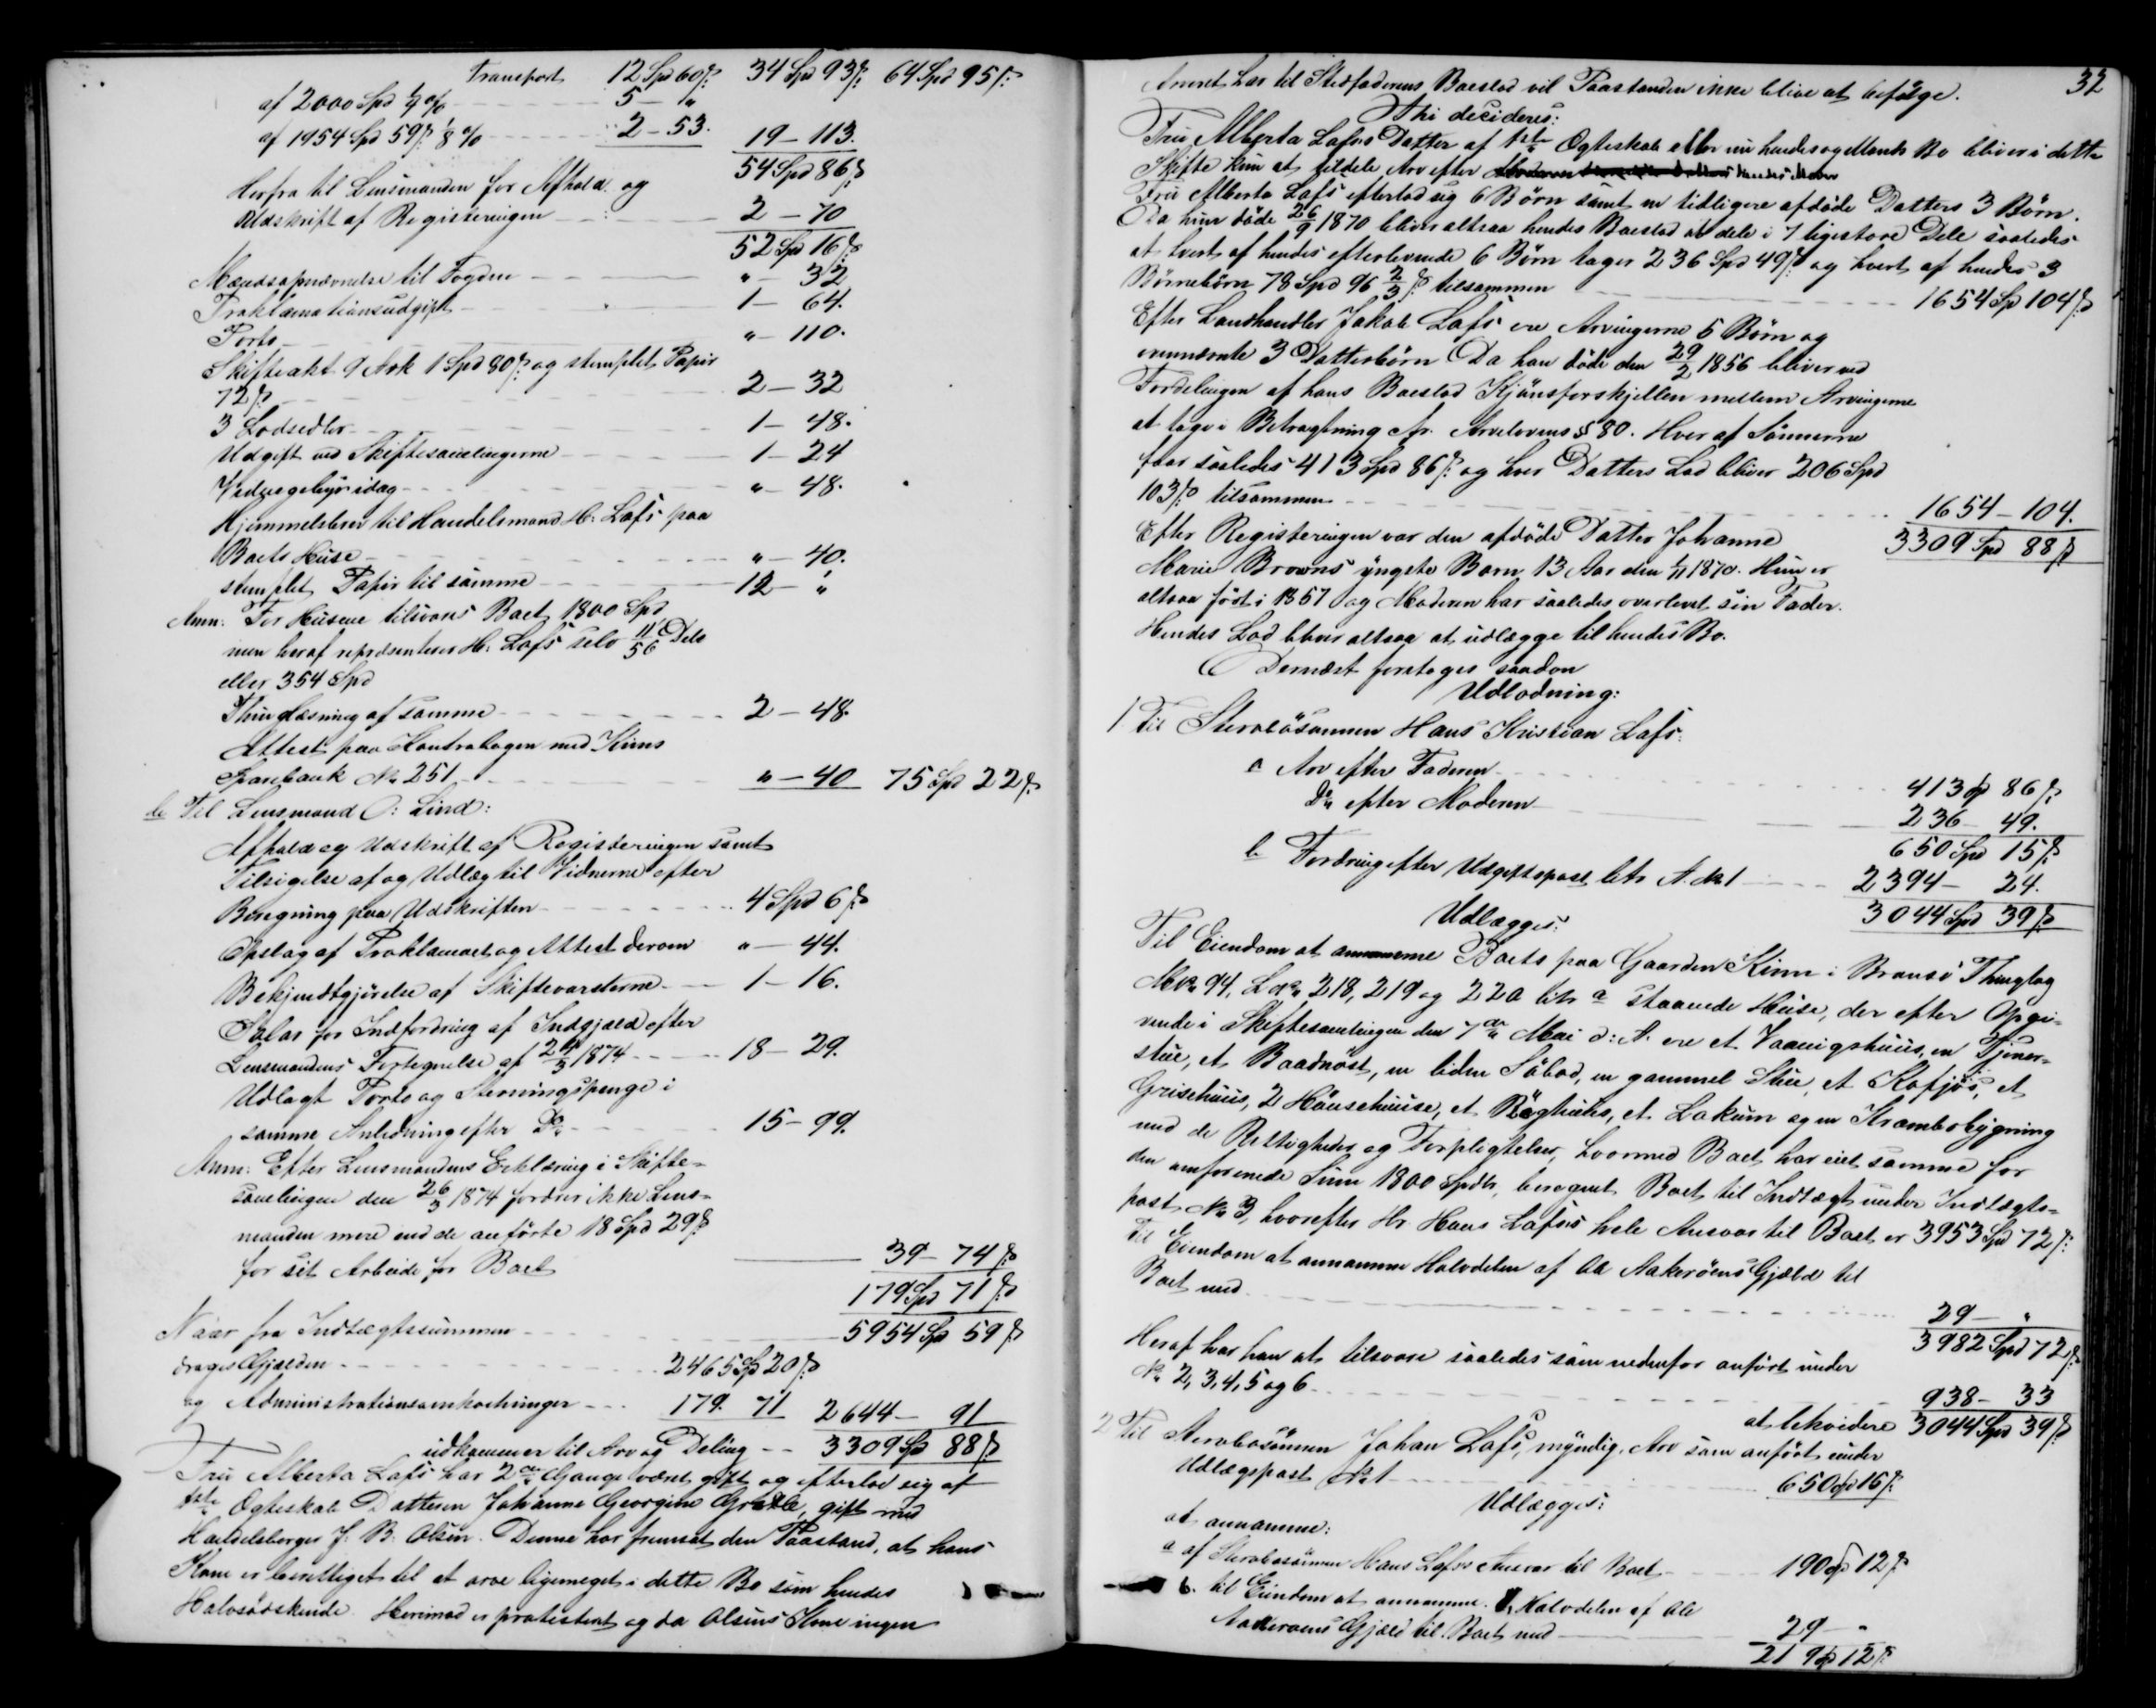 Transport 12 Spd 60 ß: 34 Spd 93 ß: 64 Spd 95 ß:
af 2000 Spd ¼ % 5 - "
af 1954 Spd 59 ß: ⅛ % 2 - 53. 19 - 113.
54 Spd 86 ß
Herfra til Lensmanden for Afhold og
Udskrift af Registeringen 2 - 70
52 Spd 16 ß
Mændsopnævnelse til Fogden " - 32
Proklamationsudgift 1 - 64.
Porto " - 110.
Skifteakt 9 Ark 1 Spd 80 ß: og stemplet Papir
72 ß 2 - 32
3 Lodsedler 1 - 48.
Udgift ved Skiftesamlingerne 1 - 24
Vidnegebyr idag " - 48.
Hjemmelsbrev til Handelsmand H: Lafs paa
Boets Huse " - 40.
stemplet Papir til samme 12 - "
Anm: For Husene tilsvares Boet 1800 Spd
men heraf repræsenterer H: Lafs selv 11/56 Dele
eller 354 Spd
Thinglæsning af samme 2 - 48.
Attest paa Kontrabogen med Kinns
Sparebank No 251 " - 40 75 Spd 22 ß:
b Til Lensmand O: Lind:
Afhold og Udskrift af Registeringen samt
Tilsigelse af og Udlæg til Vidnerne efter
Beregning paa Udskriften 4 Spd 6 ß
Opslag af Proklamaet og Attest derom " - 44.
Bekjendtgjørelse af Skiftevarslerne 1 - 16.
Salær for Indfordring af Indgjæld efter
Lensmandens Fortegnelse af 24/3 1874 18 - 29.
Udlagt Porto og Stevningspenge i
samme Anledning efter Do 15 - 99.
Anm: Efter Lensmandens Erklæring i Skifte-
samlingen den 26/3 1874 fordrer ikke Lens-
manden mere end de anførte 18 Spd 29 ß
for sit Arbeide for Boet 39 - 74 ß
179 Spd 71 ß
Naar fra Indtægtssummen 5954 Sp 59 ß
drages Gjælden 2465 Sp 20 ß
og Administrationsomkostninger 179. 71 2644 - 91
udkommer til Arv og Deling 3309 Sp 88 ß
Fru Alberta Lafs har 2de Gange været gift og efterlod sig af
1ste Ægteskab Datteren Johanne Georgine, gift med
Handelsborger J: B: Olsen. Denne har fremsat den Paastand, at hans
Kone er berettiget til at arve ligemeget i dette Bo som hendes
Halvsødskende. Herimod er protesteret og da Olsens Kone ingen
32
Arveret har til Stedfaderens Boeslod vil Paastanden ikke blive at befølge.
Thi decideres:
Fru Alberta Lafs's Datter af 1ste Ægteskab eller nu hendes og Mands Bo bliver i dette
Skifte kun at tildele Arv efter hendes Moder
Fru Alberta Lafs efterlod sig 6 Børn samt en tidligere afdøde Datters 3 Børn.
Da hun døde 26/9 1870 bliver altsaa hendes Boeslod at dele i 7 ligestore Dele saaledes
at hvert af hendes efterlevende 6 Børn tager 236 Spd 49 ß og hvert af hendes 3
Børnebørn 78 Spd 96 2/3 ß: tilsammen 1654 Sp 104 ß
Efter Landhandler Jakob Lafs ere Arvingerne 5 Børn og
ovennævnte 3 Datterbørn Da han døde den 29/2 1856 bliver ved
Fordelingen af hans Boeslod Kjønsforskjellen mellem Arvingerne
at tage i Betragtning cfr. Arvelovens § 80. Hver af Sønnerne
faar saaledes 413 Spd 86 ß: og hver Datters Lod bliver 206 Spd
103 ß tilsammen 1654 - 104.
Efter Registeringen var den afdøde Datter Johanne 3309 Spd 88 ß
Marie Browns yngste Barn 13 Aar den 1/11 1870. Hun er
altsaa født i 1857 og Moderen har saaledes overlevet sin Fader.
Hendes Lod bliver altsaa at udlægge til hendes Bo.
Dernæst foretages saadan
Udlodning:
1. Til Stervbosønnen Hans Kristian Lafs:
a Arv efter Faderen 413 Sp 86 ß:
Do efter Moderen 236 - 49.
650 Spd 15 ß
b Fordring efter Udgiftspost litr A. No 1 2394 - 24.
3044 Spd 39 ß
Udlægges:
Til Eiendom at annamme Boets paa Gaarden Kinn i Bransø Thinglag
MNo 94, LNo 218, 219 og 220 litr a staaende Huse, der efter Opgi-
vende i Skiftesamlingen den 7de Mai d: A. ere et Vaaningshuus, en Tjener-
stue, et Baadnøst, en liden Søbod, en gammel Stue, et Kofjøs, et
Grisehuus, 2 Hønsehuuse, et Røghuus, et Lokum og en Krambobygning
med de Rettigheder og Forpligtelser, hvormed Boet har eiet samme for
den omforenede Sum 1800 Spdlr, beregnet Boet til Indtægt under Indtægts-
post No 3, hvorefter Hr. Hans Lafs's hele Ansvar til Boet er 3953 Spd 72 ß:
Til Eiendom at annamme Halvdelen af Ole Aakerøens Gjæld til
Boet med 29 - "
3982 Spd 72 ß
Heraf har han at tilsvare saaledes som nedenfor anført under
No 2, 3, 4, 5 og 6 938 - 33
at likvidere 3044 Spd 39 ß
2 Til Stervbosønnen Johan Lafs, myndig, Arv som anført under
Udlægspost No 1 650 Sp 15 ß:
Udlægges:
at annamme:
a af Stervbosønnen Hans Lafs's Ansvar til Boet 190 Sp 12 ß
b. til Eiendom at annamme Halvdelen af Ole
Aakerøens Gjæld til Boet med 29 - "
219 Sp 12 ß